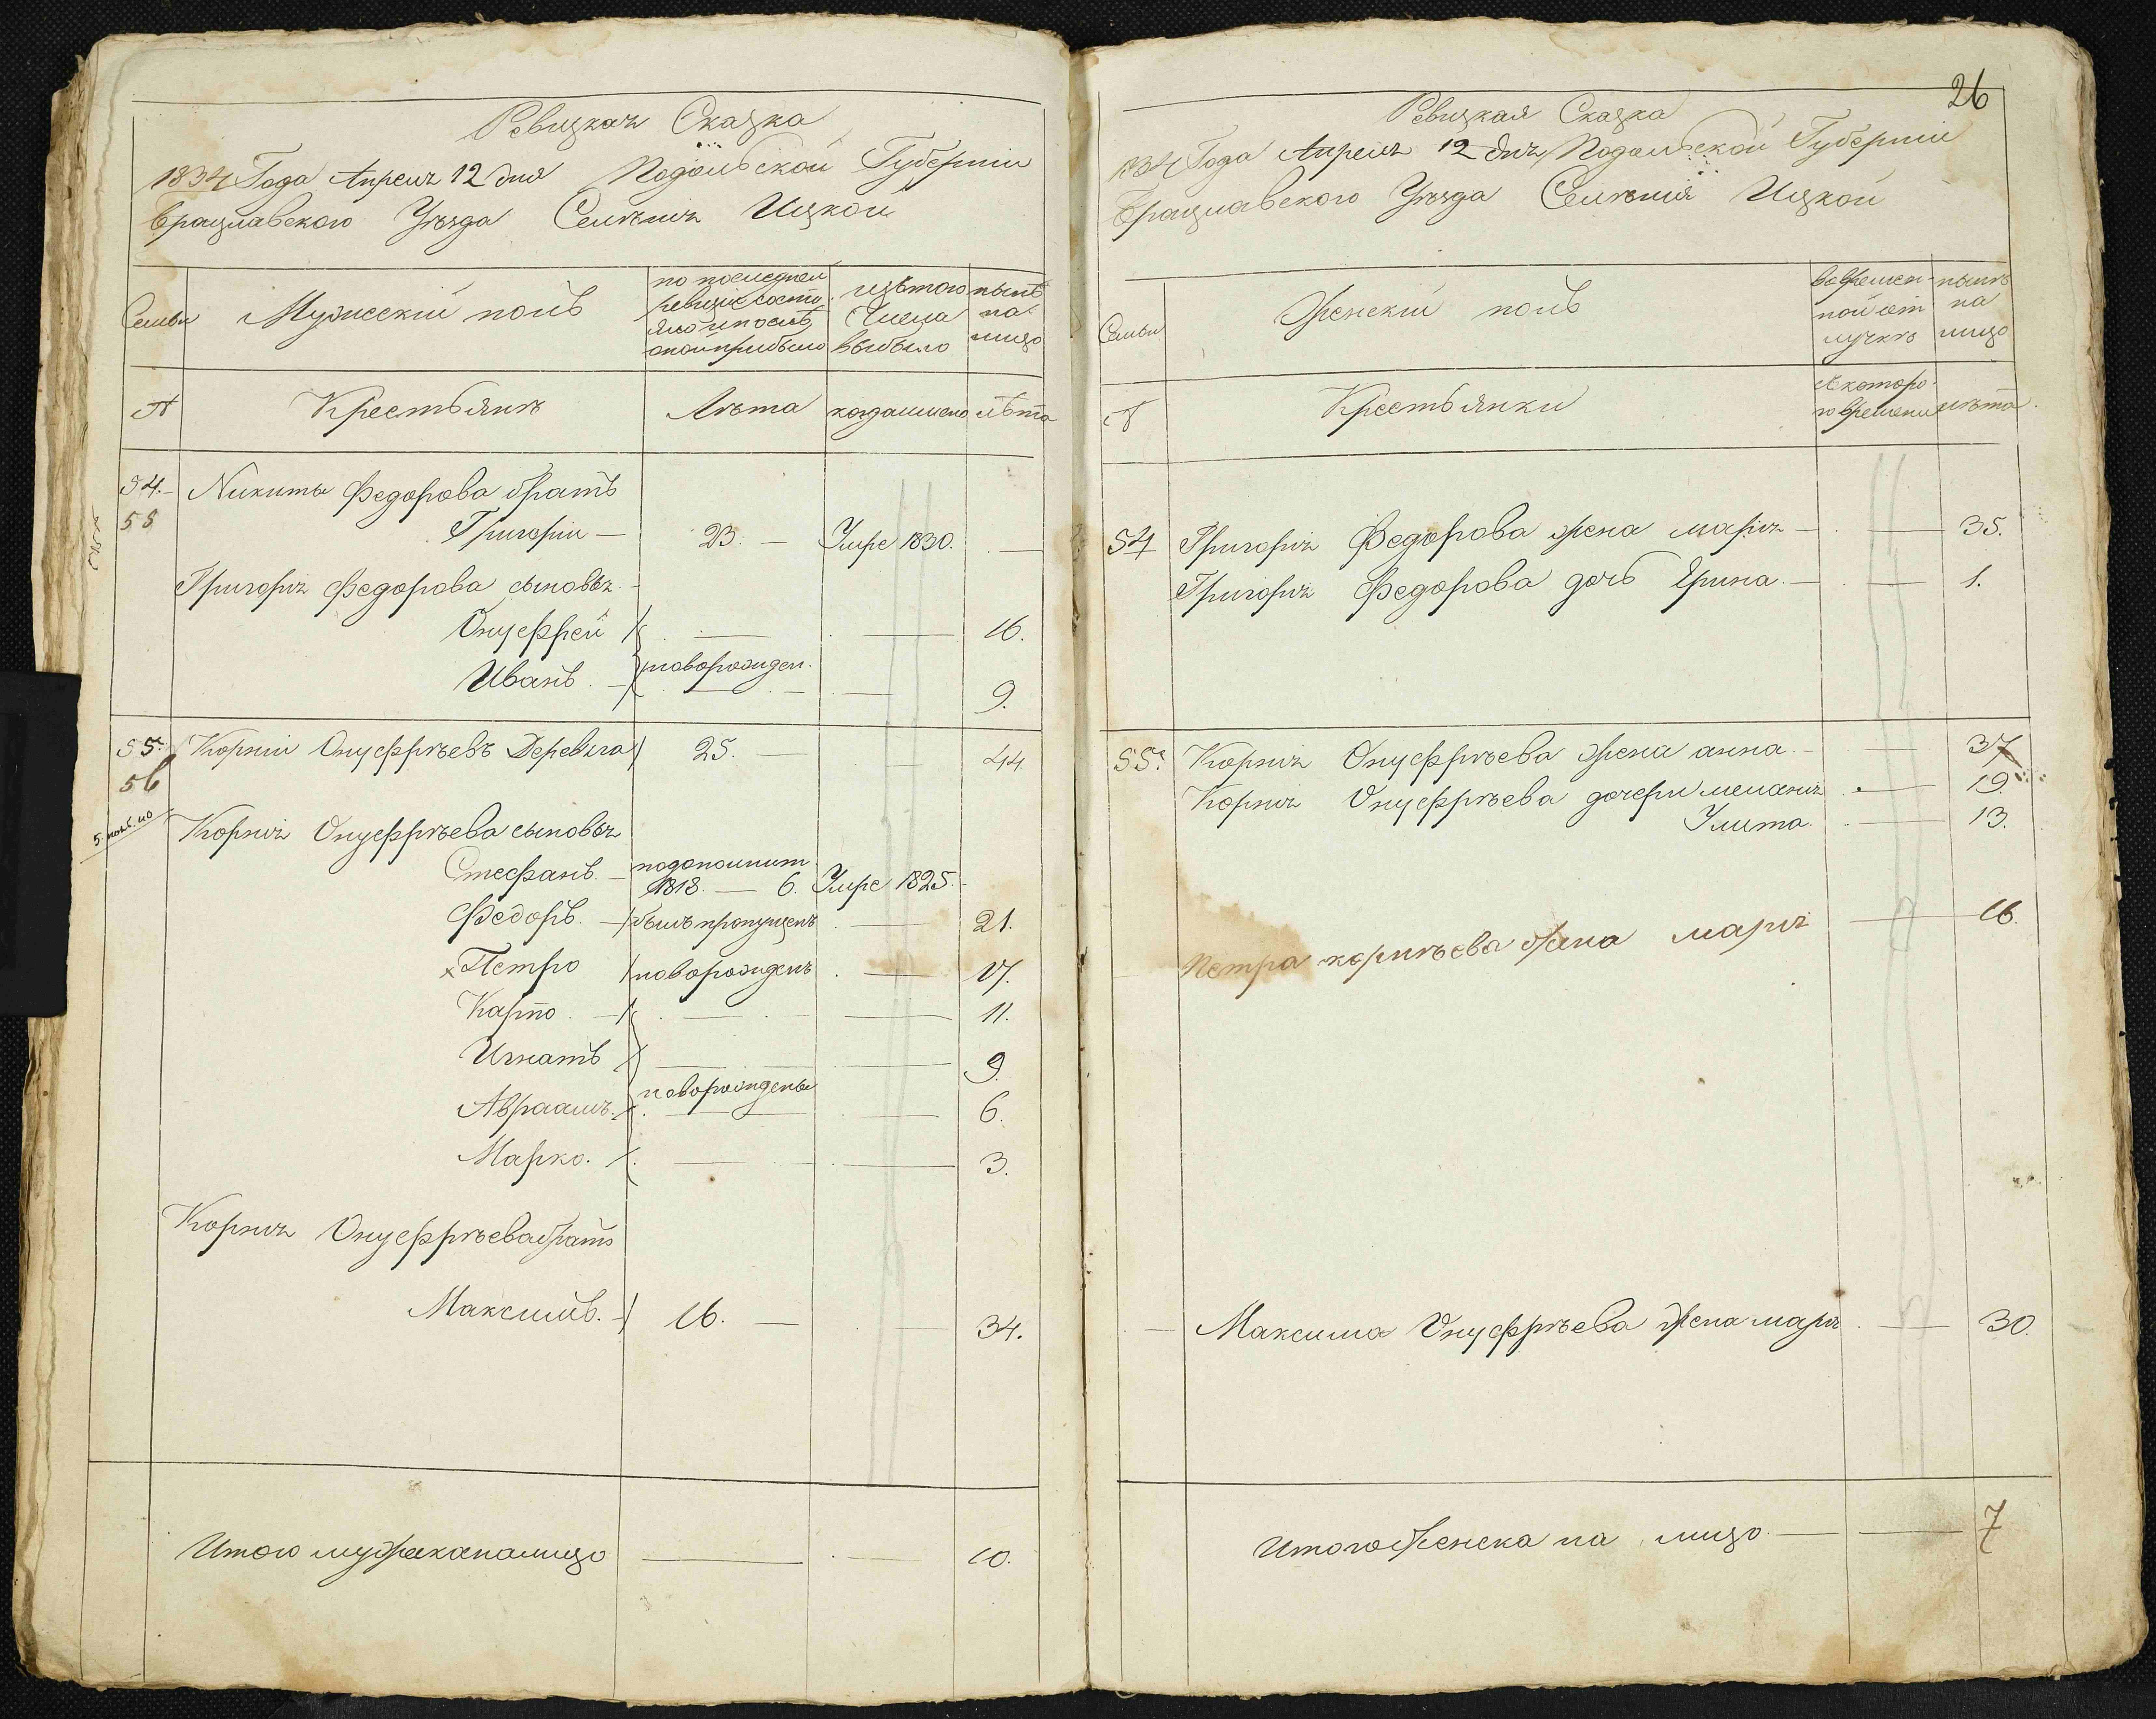 Ревизкая Сказка
1834 Года Апреля 12 дня Подольской Губернии
Брацлавского Уѣзда Селѣния Ицкой
Семьи
Мужескій полъ
по последней
ревизіи состо
яло и послѣ
оной прибыло
изъ того
Числа
выбыло
нынѣ
на
лицо
№
Крестьянѣ
Лѣта
когда именно
лѣта
54.
58
Никиты Федорова братъ
Григорій — 23. — Умре 1830. —
Григорія Федорова сыновья
Онуффрей 16.
Иванъ новорожден. 9.
55. Корній Онуффрѣевъ Деревяга 25. — 44
56
Корнія Онуффрѣева сыновья
Стефанъ — по дополнит
1818. — 6. Умре 1825.
Федоръ. — былъ пропущенъ — 21.
Петро новорожденъ — 17.
Карпо — 11.
Игнатъ — 9.
новорождены
Авраамъ. — 6.
Марко. — 3.
Корнія Онуффрѣева братъ
Максимъ. 16. — 34.
Итого мужеска на лицо — 10.
26
Ревизкая Сказка
1834 Года Апреля 12 дня Подольской Губерніи
Брацлавского Уѣзда Селѣнія Ицкой
Семьи
Женскій полъ
во времен
ной от
лучкѣ
нынѣ
на
лицо
№
Крестьянки
с котора
го времени
лѣта
54 Григорія Федорова жена марія — 35.
Григорія Федорова дочь Ярина — 1.
55. Корнія Онуффрѣева жена анна — 37
Корнія Онуффрѣева дочери меланія — 19.
Улита — 13.
Петра корнѣева жена марія — 16.
— Максима Онуффрѣева жена марія — 30.
Итого женска на лицо — 7